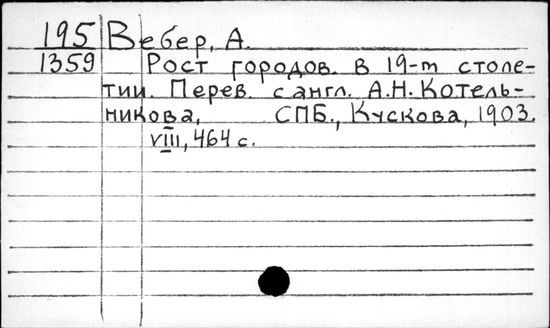 195 Вебер, А.
1359 Рост городов. в 19-т столе-
тии. Перев. с англ. А.Н. Котель-
никова, СПБ., Кускова, 1903.
VIII, 464 с.